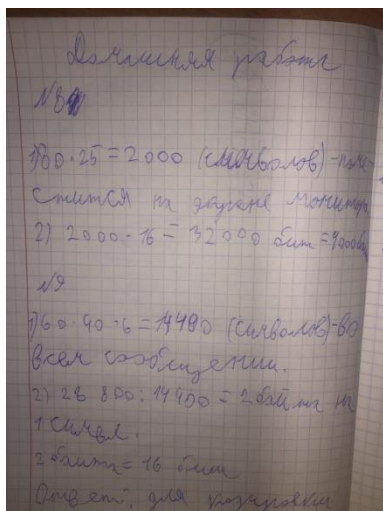 Домашняя работа
№8
1) 80·25=2000 (символов)-поме-
стится на экране монитора
2) 2000·16=32000 бит=4000б
№9
1) 60·40·6=14400 (символов)-во
всем сообщении.
2) 28 800:14400=2 байта на
1 символ.
2 байта=16 бит
Ответ: для кодировки